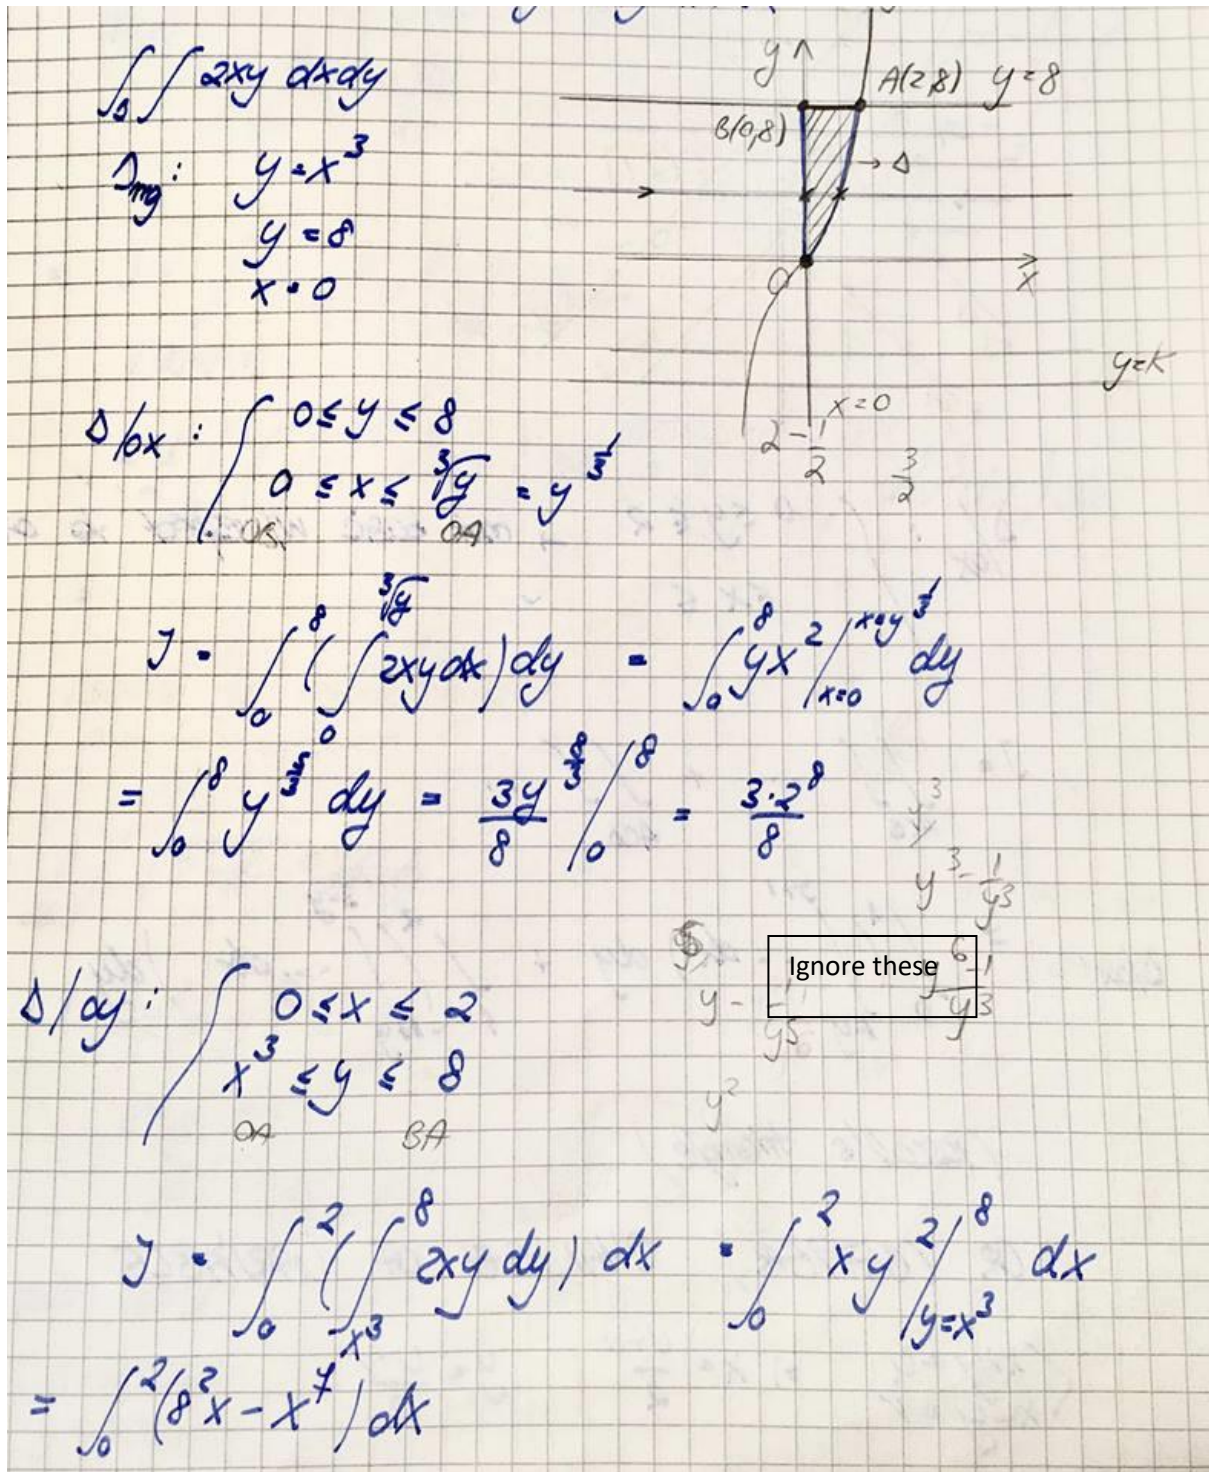 ∫∫_Δ 2xy dxdy
y = x³
y = 8
x = 0
y
A(2,8) y=8
B(0,8)
→ Δ
O
x
y=k
x=0
2 - 1/2
3/2
Δ/ox : 0 ≤ y ≤ 8
0 ≤ x ≤ ∛y = y^(1/3)
OA
J = ∫₀⁸ ( ∫₀^∛y 2xy dx) dy = ∫₀⁸ yx² |_{x=0}^{x=y^(1/3)} dy
= ∫₀⁸ y^(5/3) dy = 3y^(8/3)/8 |₀⁸ = 3·2⁸/8
y³ - 1/y³
Ignore these
y⁶-1/y³
Δ/oy : 0 ≤ x ≤ 2
x³ ≤ y ≤ 8
y²
OA BA
J = ∫₀² ( ∫_{x³}^8 2xy dy) dx = ∫₀² xy² |_{y=x³}^8 dx
= ∫₀² (8²x - x⁷) dx